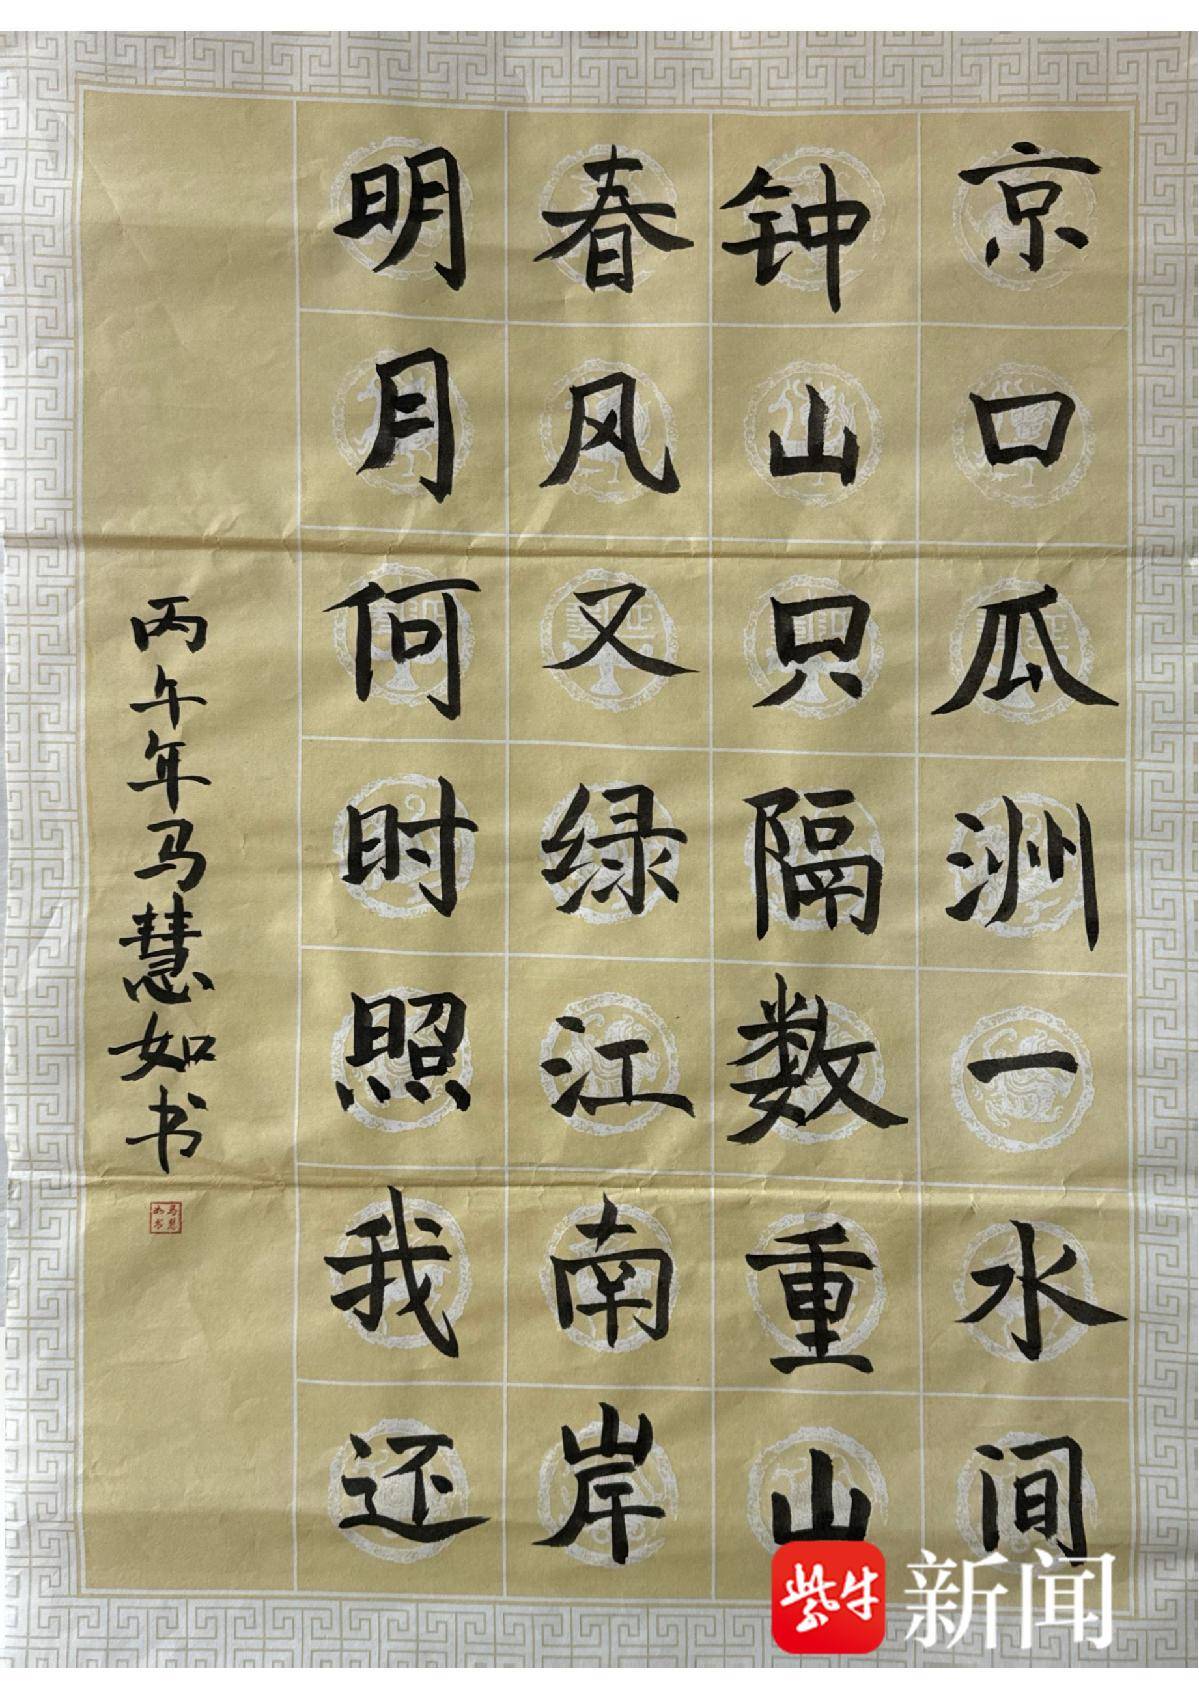 京口瓜洲一水间
钟山只隔数重山
春风又绿江南岸
明月何时照我还
丙午年马慧如书
马慧如书
紫牛新闻